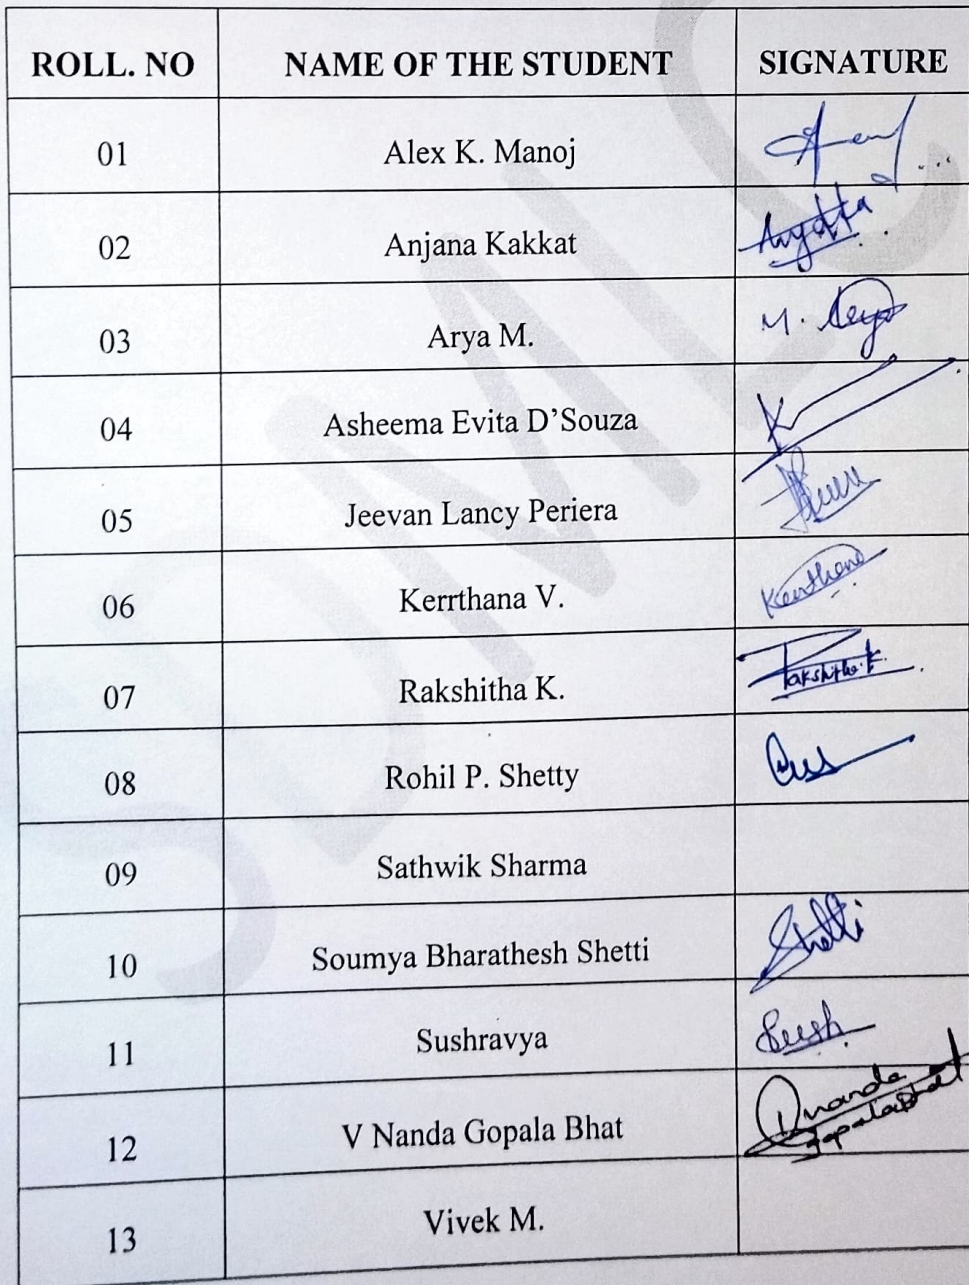 ROLL. NO NAME OF THE STUDENT SIGNATURE
01 Alex K. Manoj
02 Anjana Kakkat
03 Arya M. M. Arya
04 Asheema Evita D’Souza
05 Jeevan Lancy Periera
06 Kerrthana V.
07 Rakshitha K. Rakshitha.K
08 Rohil P. Shetty
09 Sathwik Sharma
10 Soumya Bharathesh Shetti Shetti
11 Sushravya Sush
12 V Nanda Gopala Bhat
13 Vivek M.